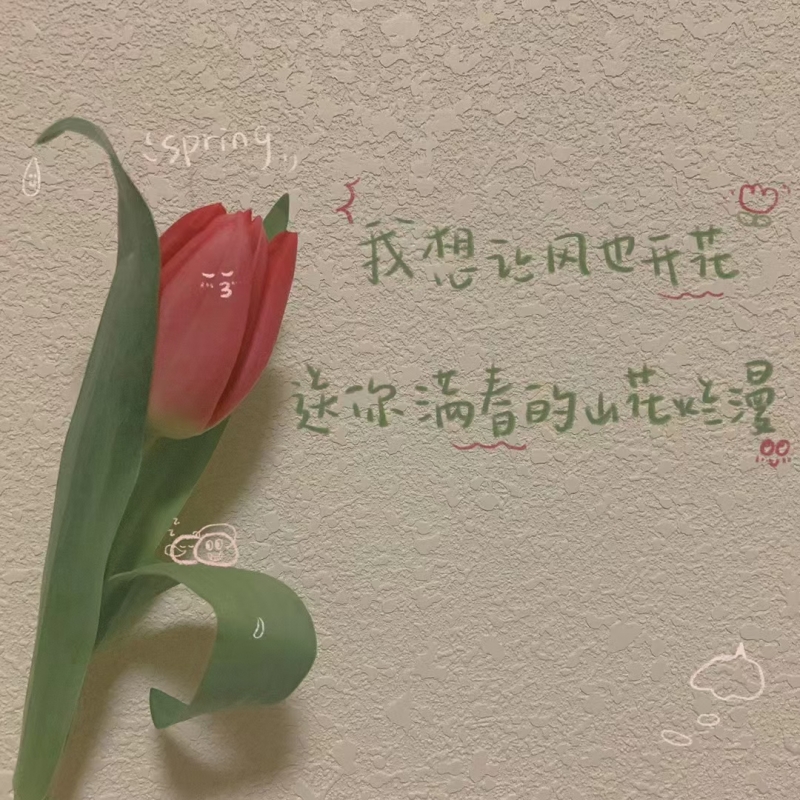 spring
我想让风也开花
送你满春的山花烂漫